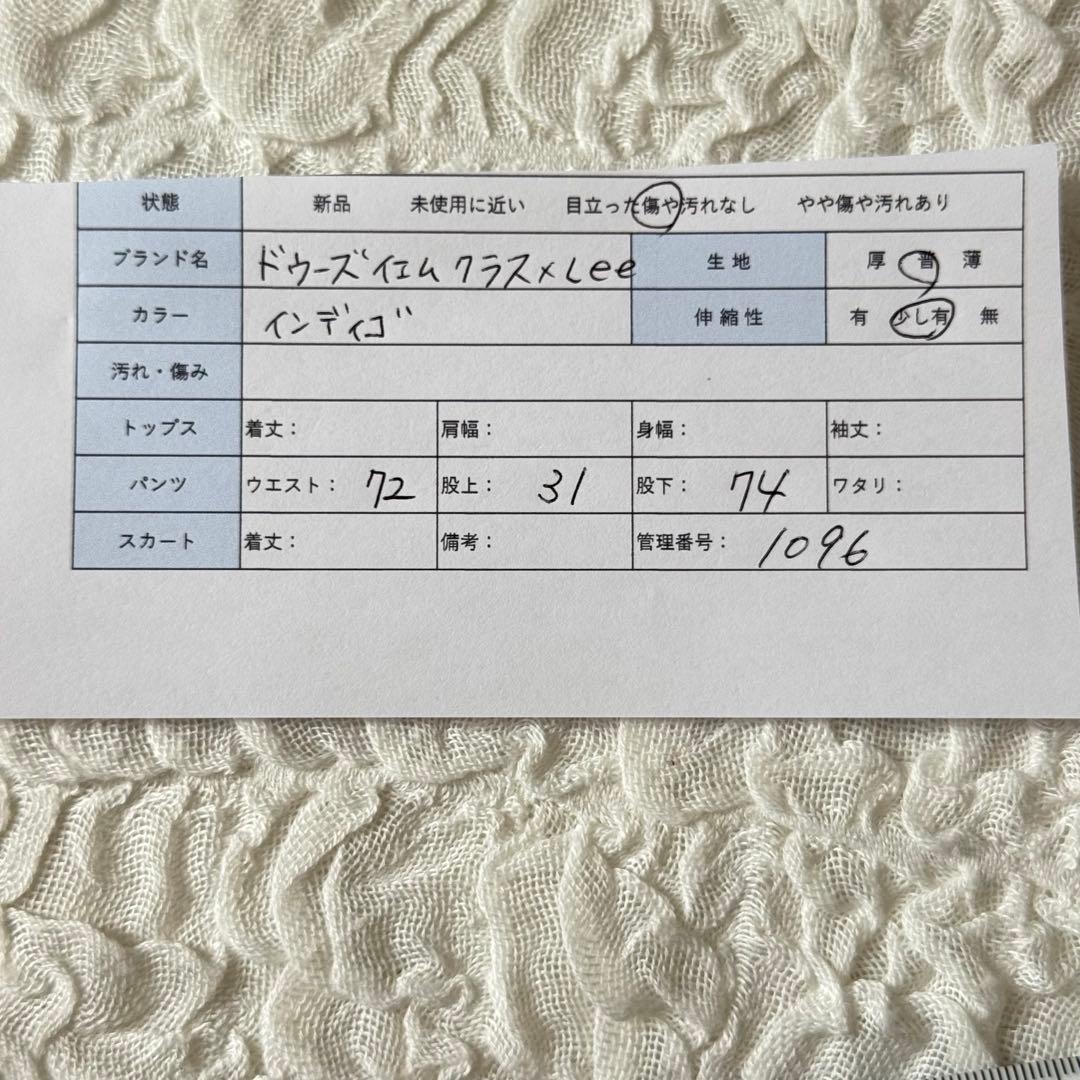 状態 新品 未使用に近い 目立った傷や汚れなし やや傷や汚れあり
ブランド名 ドゥーズイエム クラス×Lee 生地 厚 普 薄
カラー インディゴ 伸縮性 有 少し有 無
汚れ・傷み
トップス 着丈： 肩幅： 身幅： 袖丈：
パンツ ウエスト： 72 股上： 31 股下： 74 ワタリ：
スカート 着丈： 備考： 管理番号： 1096